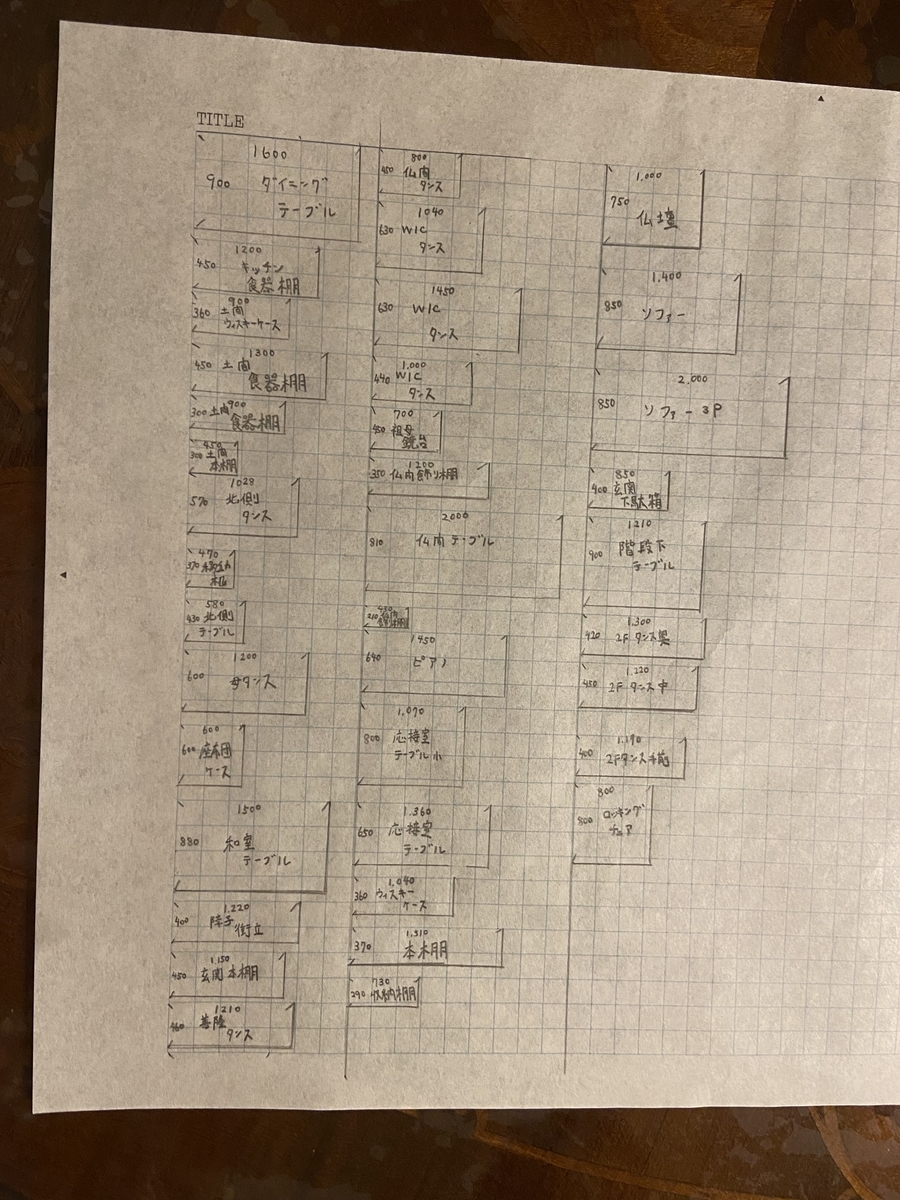 TITLE
1600
900 ダイニング
テーブル
1200
450 キッチン
食器棚
900
360 土間
ウィスキーケース
1300
450 土間
食器棚
900
300 土間
食器棚
450
300 土間
本棚
1028
570 北側
タンス
470
370
机
580
430 北側
テーブル
1200
600 母タンス
600
600 座布団
ケース
1500
880 和室
テーブル
1.220
400 障子
衝立
1.150
450 玄関本棚
1210
460
タンス
800
450 仏間
タンス
1040
630 WIC
タンス
1450
630 WIC
タンス
1.000
440 WIC
タンス
700
450 祖母
鏡台
1200
350 仏間飾り棚
2000
810 仏間テーブル
450
210 仏間
1450
640 ピアノ
1.070
800 応接室
テーブル小
1.360
650 応接室
テーブル
1.040
360 ウィスキー
ケース
1.510
370 本棚
730
290 収納棚
1.000
750
仏壇
1.400
850 ソファー
2.000
850 ソファー 3P
850
400 玄関
下駄箱
1210
900 階段下
テーブル
1.300
420 2Fタンス奥
1.220
450 2Fタンス中
1.190
400 2Fタンス手前
800
800 ロッキング
チェア